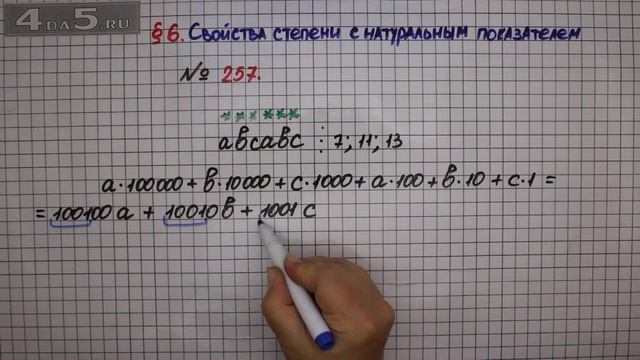 4DA5.RU
§6. Свойства степени с натуральным показателем
№ 257.
*** ***
авсавс ⋮ 7; 11; 13
а·100000+в·10000+с·1000+а·100+в·10+с·1=
= 100100а + 10010в + 1001с